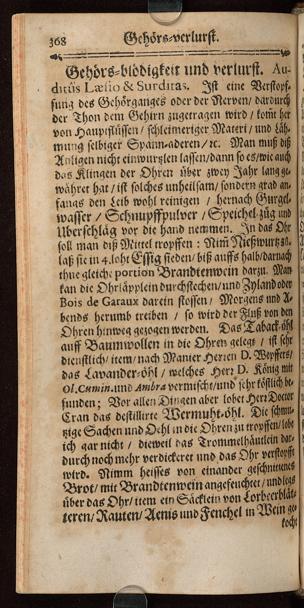 368 Gehörs-verlurst.
Gehörs-blödigkeit und verlurst. Au-
ditûs Læsio & Surditas. Ist eine Verstopf-
fung des Gehörganges oder der Nerven/ dardurch
der Thon dem Gehirn zugetragen wird / kom̃t her
von Hauptflüssen / schleimeriger Materi / und Läh-
mung selbiger Spann-aderen / ꝛc. Man muß diß
Anligen nicht einwurtzlen lassen/dann so es/wie auch
das Klingen der Ohren über zwey Jahr lang ge-
währet hat / ist solches unheilsam/ sondern grad an-
fangs den Leib wohl reinigen / hernach Gurgel-
wasser / Schnupffpulver / Speichel-züg und
Uberschläg vor die hand nemmen. In das Ohr
soll man diß Mittel tropffen: Nim̃ Nießwurtz
laß sie in 4. loht Essig sieden/ biß auffs halb/darnach
thue gleiche portion Brandtenwein darzu. Man
kan die Ohrläpplein durchstechen/ und Zyland oder
Bois de Garaux darein stossen / Morgens und A-
bends herumb treiben / so wird der Fluß von den
Ohren hinweg gezogen werden. Das Taback-öhl
auff Baumwollen in die Ohren gelegt / ist sehr
dienstlich/ item/ nach Manier Herren D. Wepffers/
das Lavander-öhl / welches Herr D. König mit
Ol. Cumin. und Ambra vermischt/und sehr köstlich be-
funden; Vor allen Dingen aber lobet Herr Doctor
Cran das destillirte Wermuht-öhl. Die schmu-
tzige Sachen und Oehl in die Ohren zu tropffen/ lobe
ich gar nicht / dieweil das Trommelhäutlein dar-
durch noch mehr verdickeret und das Ohr verstopfft
wird. Nimm heisses von einander geschnittenes
Brot/ mit Brandtenwein angefeuchtet / und legs
über das Ohr/ item ein Säcklein von Lorbeerblät-
teren/ Rauten/ Aenis und Fenchel in Wein ge-
kocht